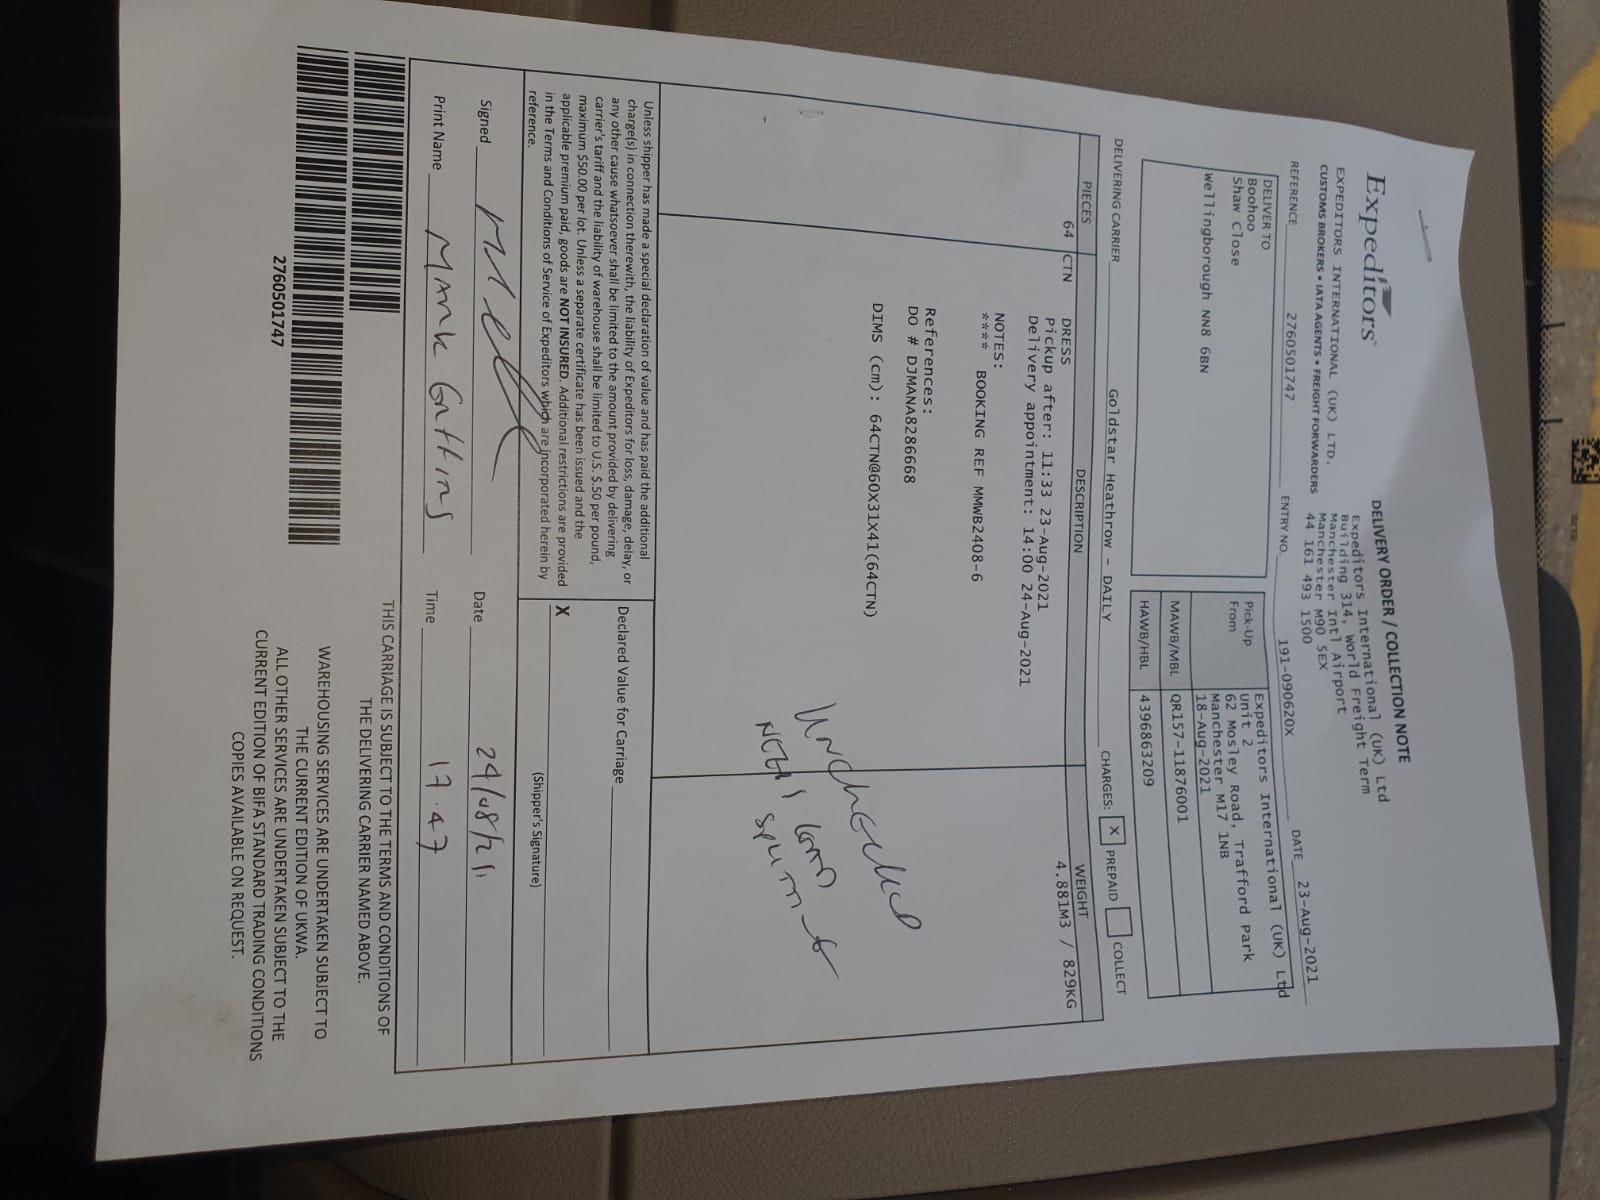 Expeditors
DELIVERY ORDER / COLLECTION NOTE
EXPEDITORS INTERNATIONAL (UK) LTD.
CUSTOMS BROKERS • IATA AGENTS • FREIGHT FORWARDERS
Expeditors International (UK) Ltd
Building 314, World Freight Term
Manchester Intl Airport
Manchester M90 5EX
44 161 493 1500
REFERENCE 2760501747 ENTRY NO. 191-090620X DATE 23-Aug-2021
DELIVER TO
Boohoo
Shaw Close
Wellingborough NN8 6BN
Pick-Up From
Expeditors International (UK) Ltd
Unit 2
62 Mosley Road, Trafford Park
Manchester M17 1NB
18-Aug-2021
MAWB/MBL QR157-11876001
HAWB/HBL 4396863209
DELIVERING CARRIER Goldstar Heathrow - DAILY CHARGES: X PREPAID COLLECT
PIECES DESCRIPTION WEIGHT
64 CTN DRESS 4.881M3 / 829KG
Pickup after: 11:33 23-Aug-2021
Delivery appointment: 14:00 24-Aug-2021
NOTES:
**** BOOKING REF MMWB2408-6
References:
DO # DJMANA8286668
DIMS (cm): 64CTN@60X31X41(64CTN)
UNCHECKED
Unless shipper has made a special declaration of value and has paid the additional
charge(s) in connection therewith, the liability of Expeditors for loss, damage, delay, or
any other cause whatsoever shall be limited to the amount provided by delivering
carrier's tariff and the liability of warehouse shall be limited to U.S. $.50 per pound,
maximum $50.00 per lot. Unless a separate certificate has been issued and the
applicable premium paid, goods are NOT INSURED. Additional restrictions are provided
in the Terms and Conditions of Service of Expeditors which are incorporated herein by
reference.
Declared Value for Carriage
X
(Shipper's Signature)
Signed Date 24/08/21
Print Name Mark Time 17.47
2760501747
THIS CARRIAGE IS SUBJECT TO THE TERMS AND CONDITIONS OF
THE DELIVERING CARRIER NAMED ABOVE.
WAREHOUSING SERVICES ARE UNDERTAKEN SUBJECT TO
THE CURRENT EDITION OF UKWA.
ALL OTHER SERVICES ARE UNDERTAKEN SUBJECT TO THE
CURRENT EDITION OF BIFA STANDARD TRADING CONDITIONS
COPIES AVAILABLE ON REQUEST.